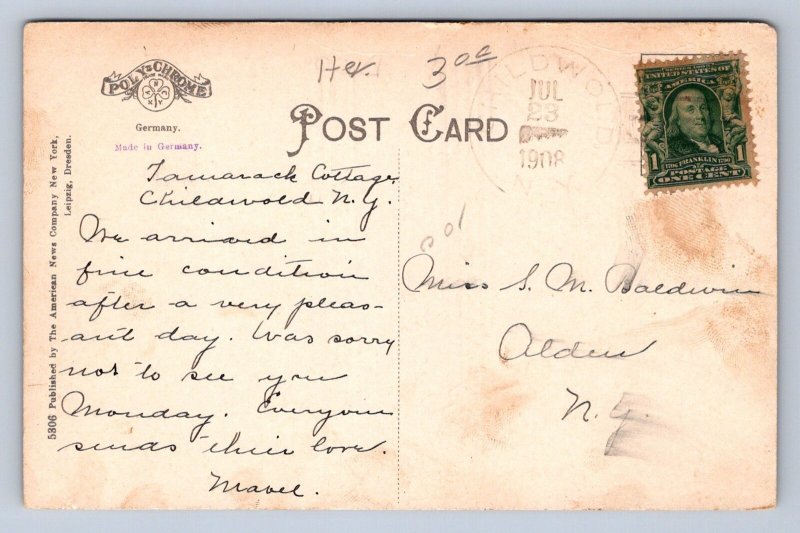 POLY-CHROME
Germany.
Made in Germany.
5306 Published by The American News Company New York,
Leipzig, Dresden.
POST CARD
300
JUL
23
1908
N.Y.
UNITED STATES OF AMERICA
1706 FRANKLIN 1790
1 POSTAGE 1
ONE CENT
Tamarack Cottage
Childwold N.Y.
We arrived in
fine condition
after a very pleas-
ant day. Was sorry
not to see you
Monday. Everyone
sends their love.
Mabel.
Miss S. M. Baldwin
Alden
N.Y.